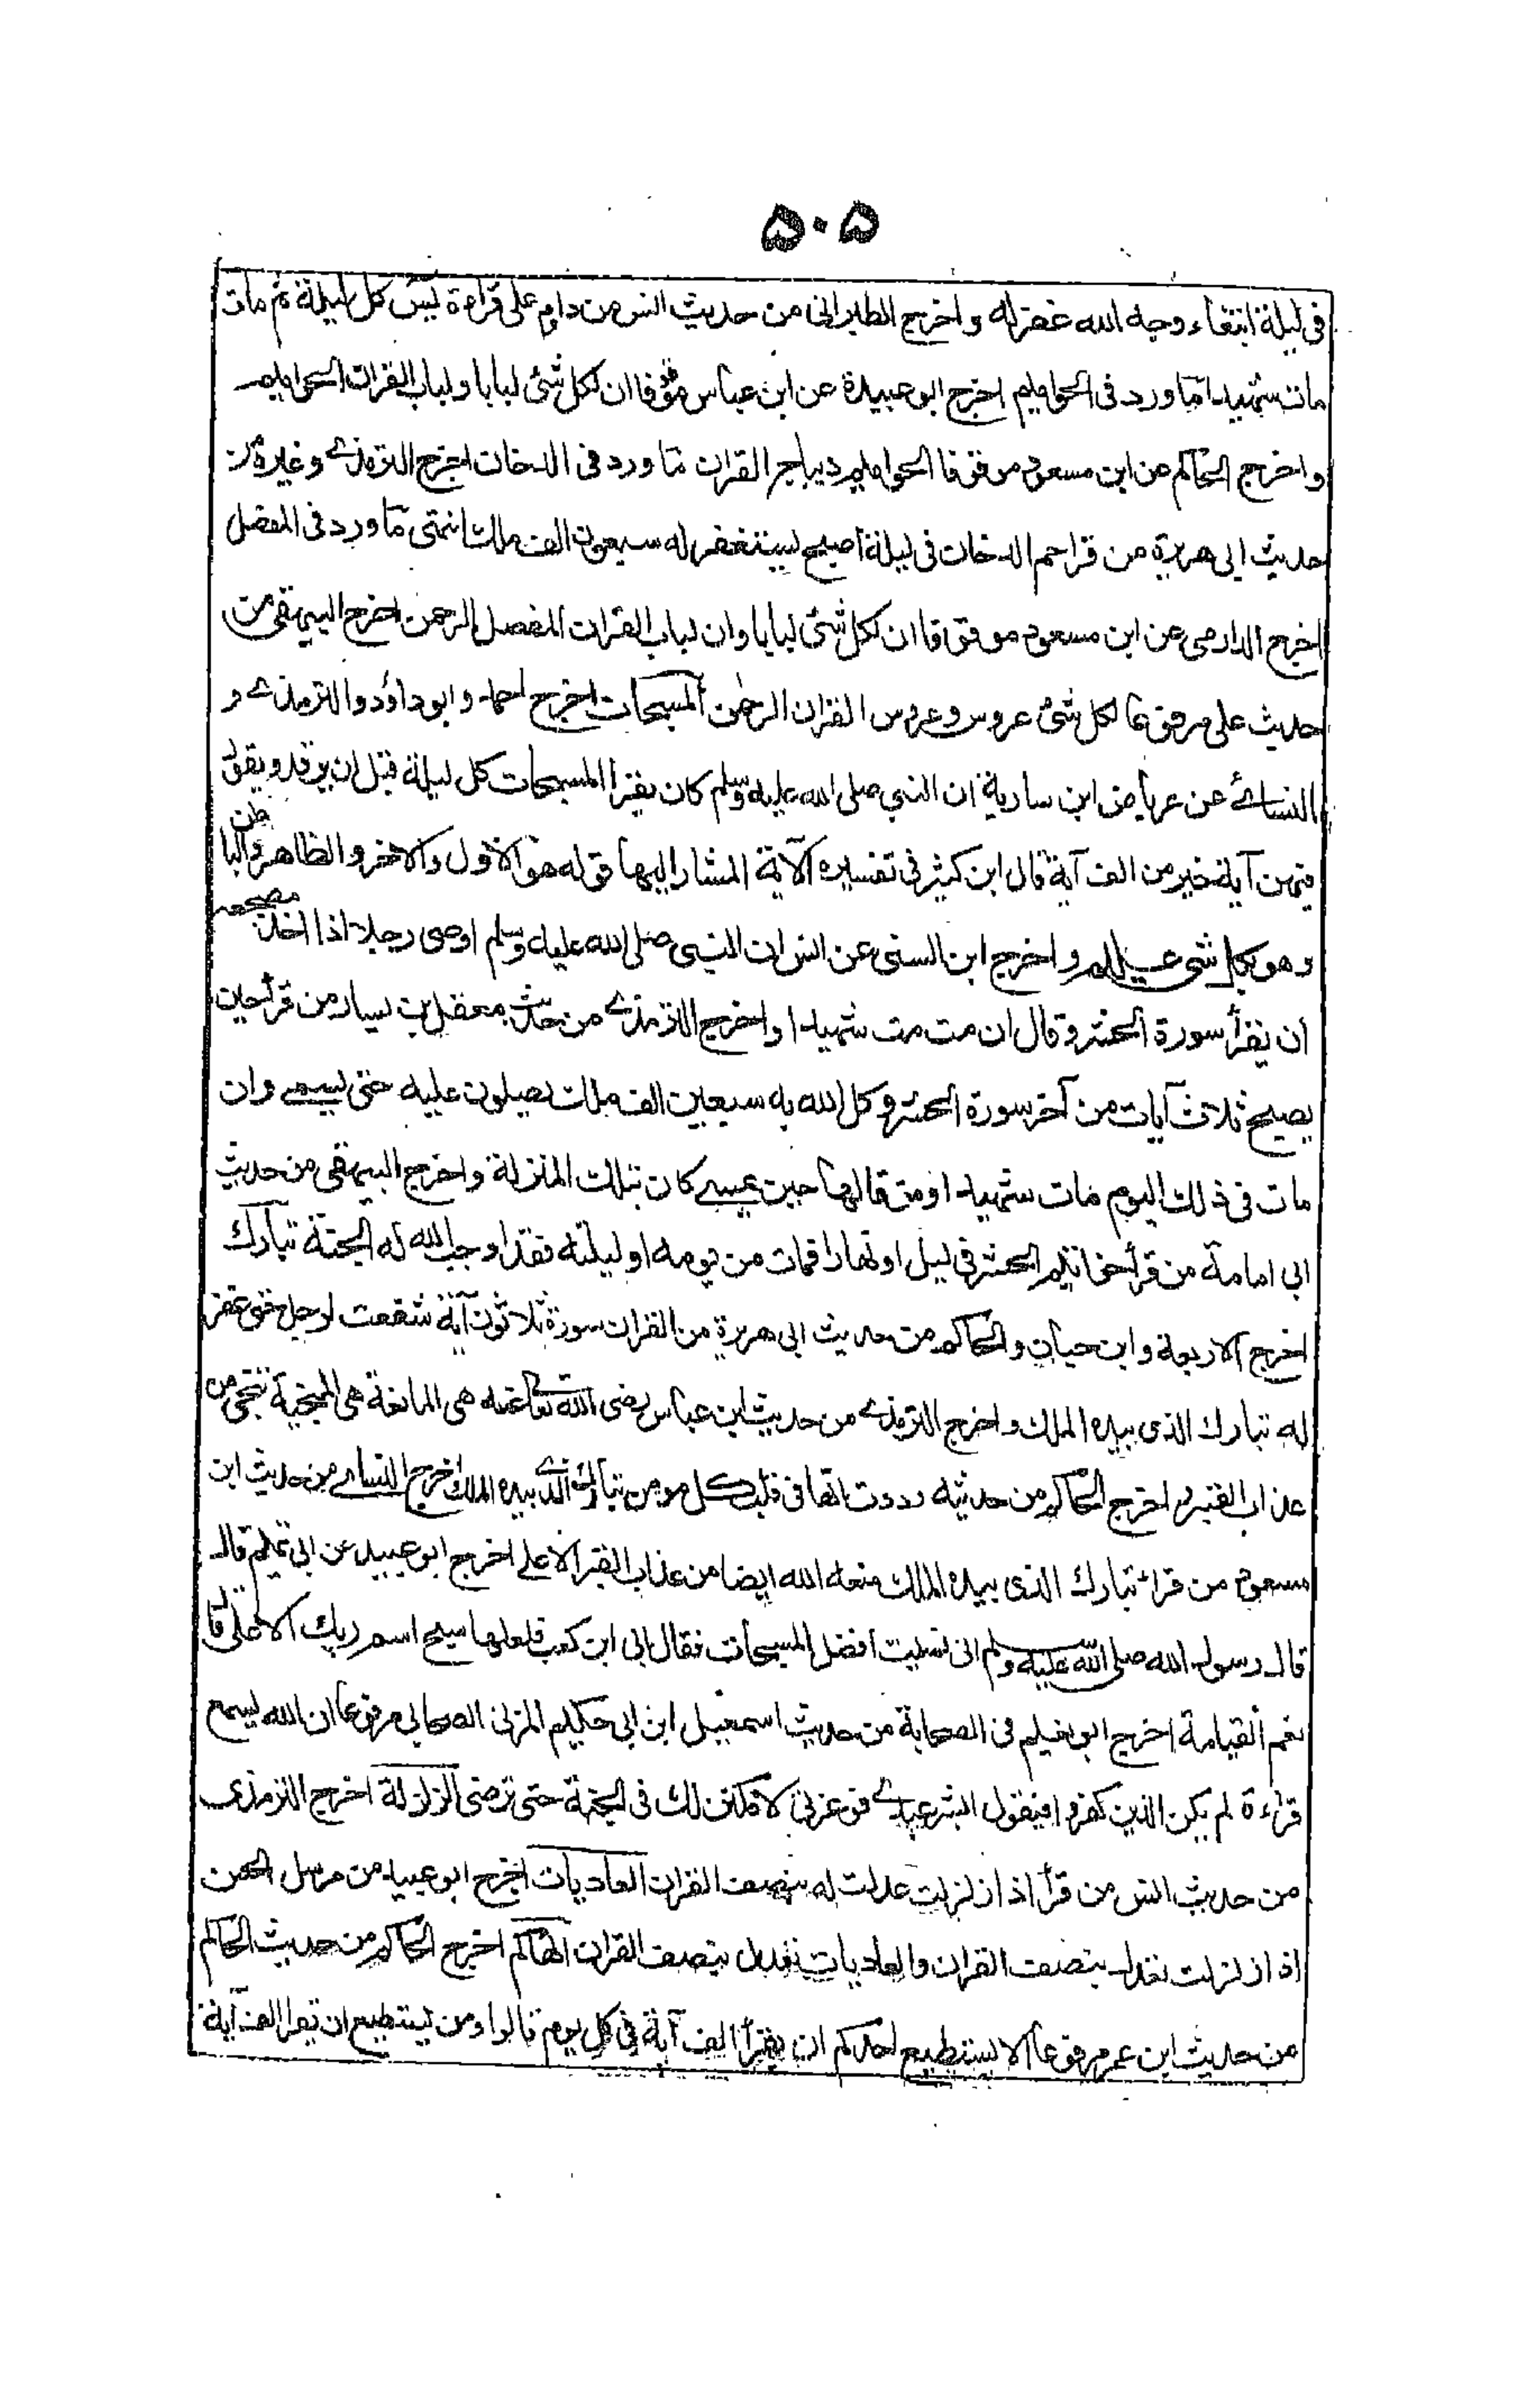 ۵۰۵
فى ليلة ابتغاء وجه الله غفر له و اخرج الطبرانى من حديث انس من داوم على قراءة يس كل ليلة ثم مات
مات شهيدا ما ورد فى الحواميم اخرج ابو عبيدة عن ابن عباس موقوفا ان لكل شئ لبابا و لباب القران الحواميم
و اخرج الحاكم عن ابن مسعود موقوفا الحواميم ديباج القران ما ورد فى الدخان اخرج الترمذے و غيره من
حديث ابى هريرة من قرا حم الدخان فى ليلة اصبح يستغفر له سبعون الف ملك انتهى ما ورد فى المفصل
اخرج الدارمى عن ابن مسعود موقوفا ان لكل شئ لبابا و ان لباب القران المفصل الرحمن اخرج البيهقى من
حديث على مرفوعا لكل شئ عروس و عروس القران الرحمن المسبحات اخرج احمد و ابو داؤد و الترمذے و
النسائے عن عرباض ابن سارية ان النبي صلى الله عليه وسلم كان يقرا المسبحات كل ليلة قبل ان يرقد و يقول
فيهن آية خير من الف آية قال ابن كثير فى تفسيره الآية المشار اليها قوله هو الاول و الاخر و الظاهر و الباطن
و هو بكل شى عليم و اخرج ابن السنى عن انس ان النبى صلى الله عليه وسلم اوصى رجلا اذا اخذ مضجعه
ان يقرأ سورة الحشر و قال ان مت مت شهيدا و اخرج الترمذے من حديث معقل بن يسار من قرأ حين
يصبح ثلاث آيات من آخر سورة الحشر وكل الله به سبعين الف ملك يصلون عليه حتى يمسے و ان
مات فى ذلك اليوم مات شهيدا و من قالها حين يمسے كان بتلك المنزلة و اخرج البيهقى من حديث
ابى امامة من قرأ خواتيم الحشر فى ليل او نهار فمات من يومه او ليلته فقد اوجب الله له الجنة تبارك
اخرج الاربعة و ابن حبان و الحاكم من حديث ابى هريرة من القران سورة ثلاثون آية شفعت لرجل حتى غفر
له تبارك الذى بيده الملك و اخرج الترمذے من حديث ابن عباس رضى الله تعالى عنه هى المانعة هى المنجية تنجى من
عذاب القبر و اخرج الحاكم من حديثه وددت انها فى قلب كل مومن تبارك الذے بيده الملك اخرج النسائے من حديث ابن
مسعود من قراء تبارك الذى بيده الملك منعه الله ايضا من عذاب القبر الاعلے اخرج ابو عبيد عن ابى تميم قال
قال رسول الله صلى الله عليه وسلم انى نسيت افضل المسبحات فقال ابى ابن كعب فلعلها سبح اسم ربك الاعلى قال
نعم القيامة اخرج ابو نعيم فى الصحابة من حديث اسمعيل ابن ابى حكيم المزنى الصحابى مرفوعا ان الله ليسمع
قراءة لم يكن الذين كفروا فيقول ابشر عبدے فوعزتى لامكنن لك فى الجنة حتى ترضى الزلزلة اخرج الترمذى
من حديث انس من قرأ اذا زلزلت عدلت له بنصف القران العاديات اخرج ابو عبيد من مرسل الحسن
اذا زلزلت تعدل بنصف القران و العاديات تعدل بنصف القران الهاكم اخرج الحاكم من حديث الحاكم
من حديث ابن عمر مرفوعا الا يستطيع احدكم ان يقرأ الف آية فى كل يوم قالوا و من يستطيع ان يقرا الف آية